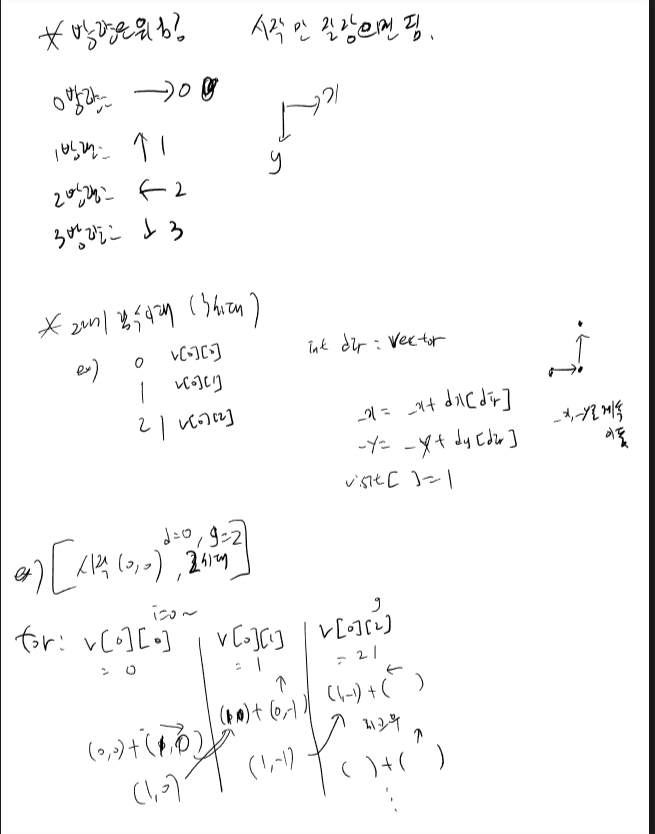 * 방향은 뭐 함? 시작만 잘 잡으면 됨.
0방향은 → 0
x
1방향은 ↑ 1
y
2방향은 ← 2
3방향은 ↓ 3
* 2세대
ex) 0 v[0][0]
1 v[0][1]
2 1 v[0][2]
int dir = vector
_x = _x + dx[dir]
_y = _y + dy[dir]
visit[ ] = 1
_x, _y로 계속
이동
d=0, g=2
ex) [시작 (0,0), 2세대]
i=0~ g
for: v[0][0] v[0][1] v[0][2]
= 0 = 1 = 2 1
(0,0)+(1,0) (1,0)+(0,-1) (1,-1)+( )
(1,0) (1,-1) ( )+( )